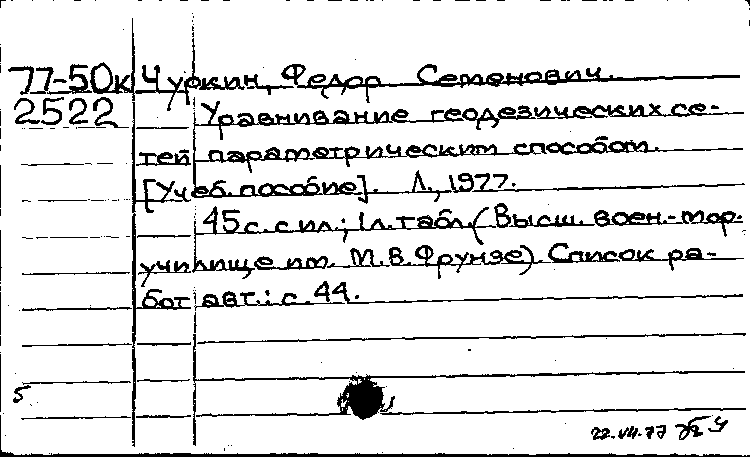 77-50к Чуркин, Федор Семенович.
2522 Уравнивание геодезических се-
тей параметрическим способом.
[Учеб. пособие]. Л., 1977.
45 с. с ил.; 1 л. табл. (Высш. воен.-мор.
училище им. М.В. Фрунзе). Список ра-
бот авт.: с. 44.
5
22.VII.77